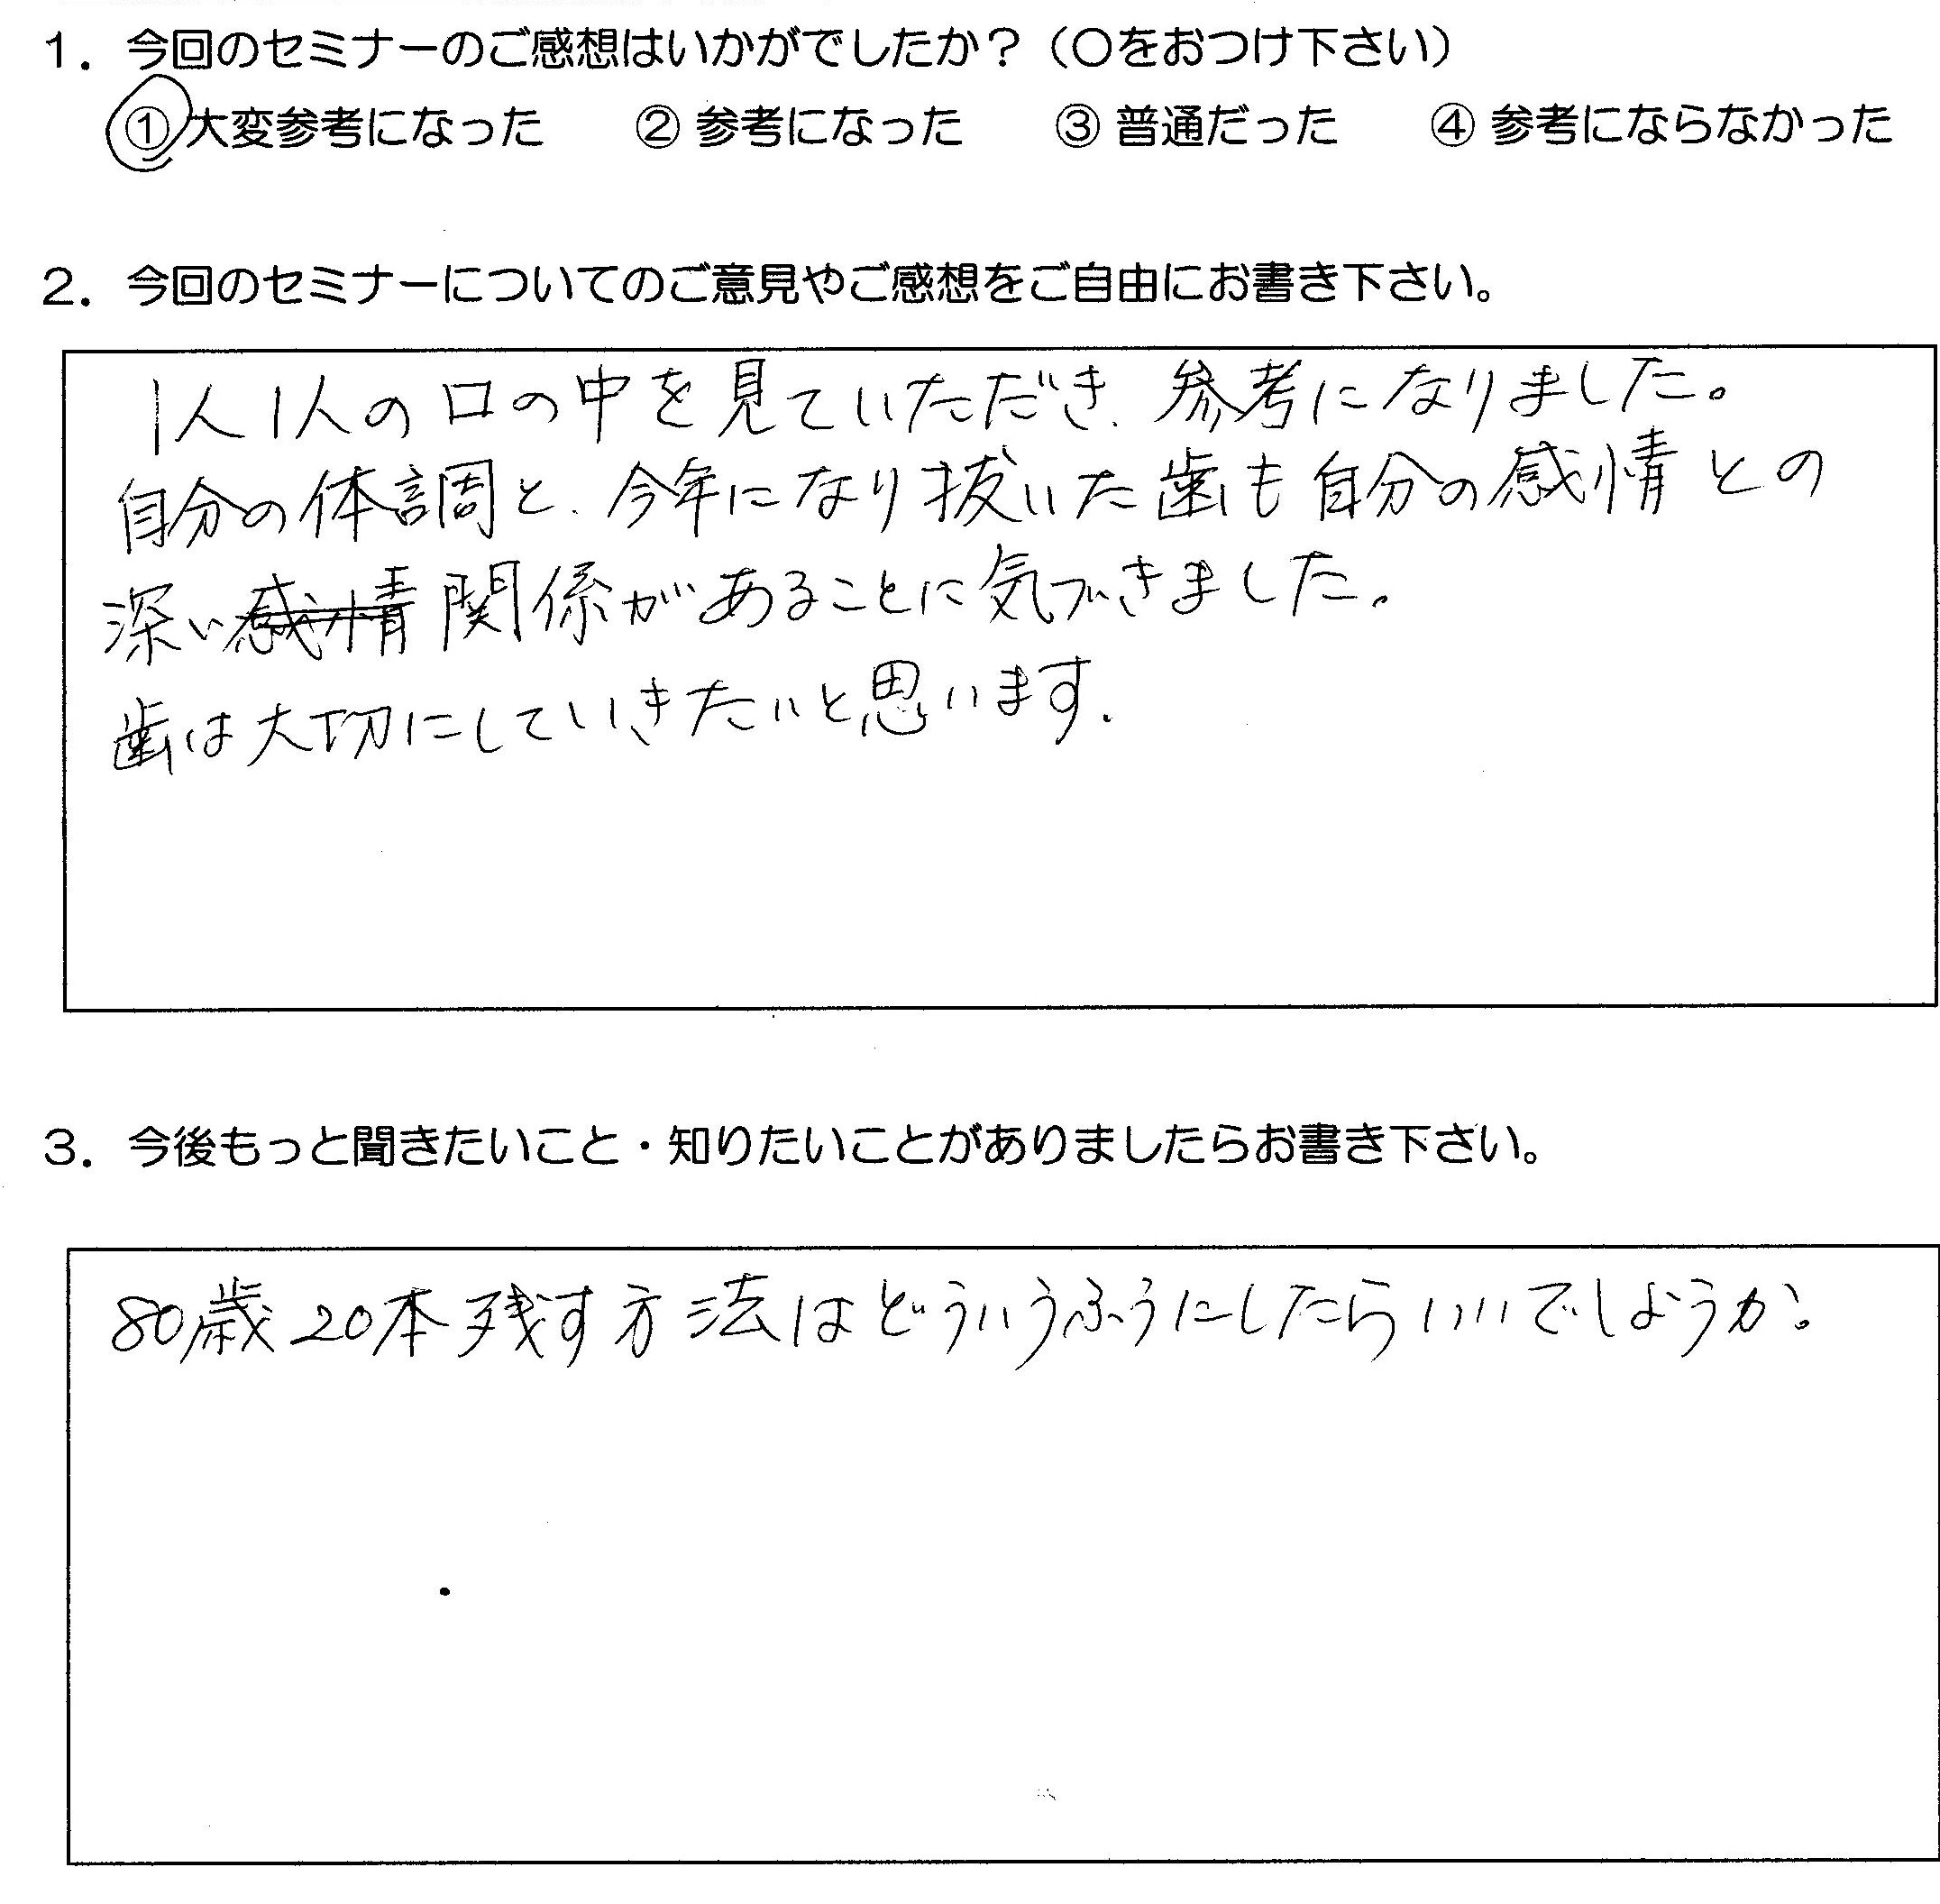 1. 今回のセミナーのご感想はいかがでしたか？（○をおつけ下さい）
① 大変参考になった ② 参考になった ③ 普通だった ④ 参考にならなかった
2. 今回のセミナーについてのご意見やご感想をご自由にお書き下さい。
1人1人の口の中を見ていただき、参考になりました。
自分の体調と、今年になり抜いた歯も自分の感情との
深い感情関係があることに気づきました。
歯は大切にしていきたいと思います.
3. 今後もっと聞きたいこと・知りたいことがありましたらお書き下さい。
80歳20本残す方法はどういうふうにしたらいいでしょうか。